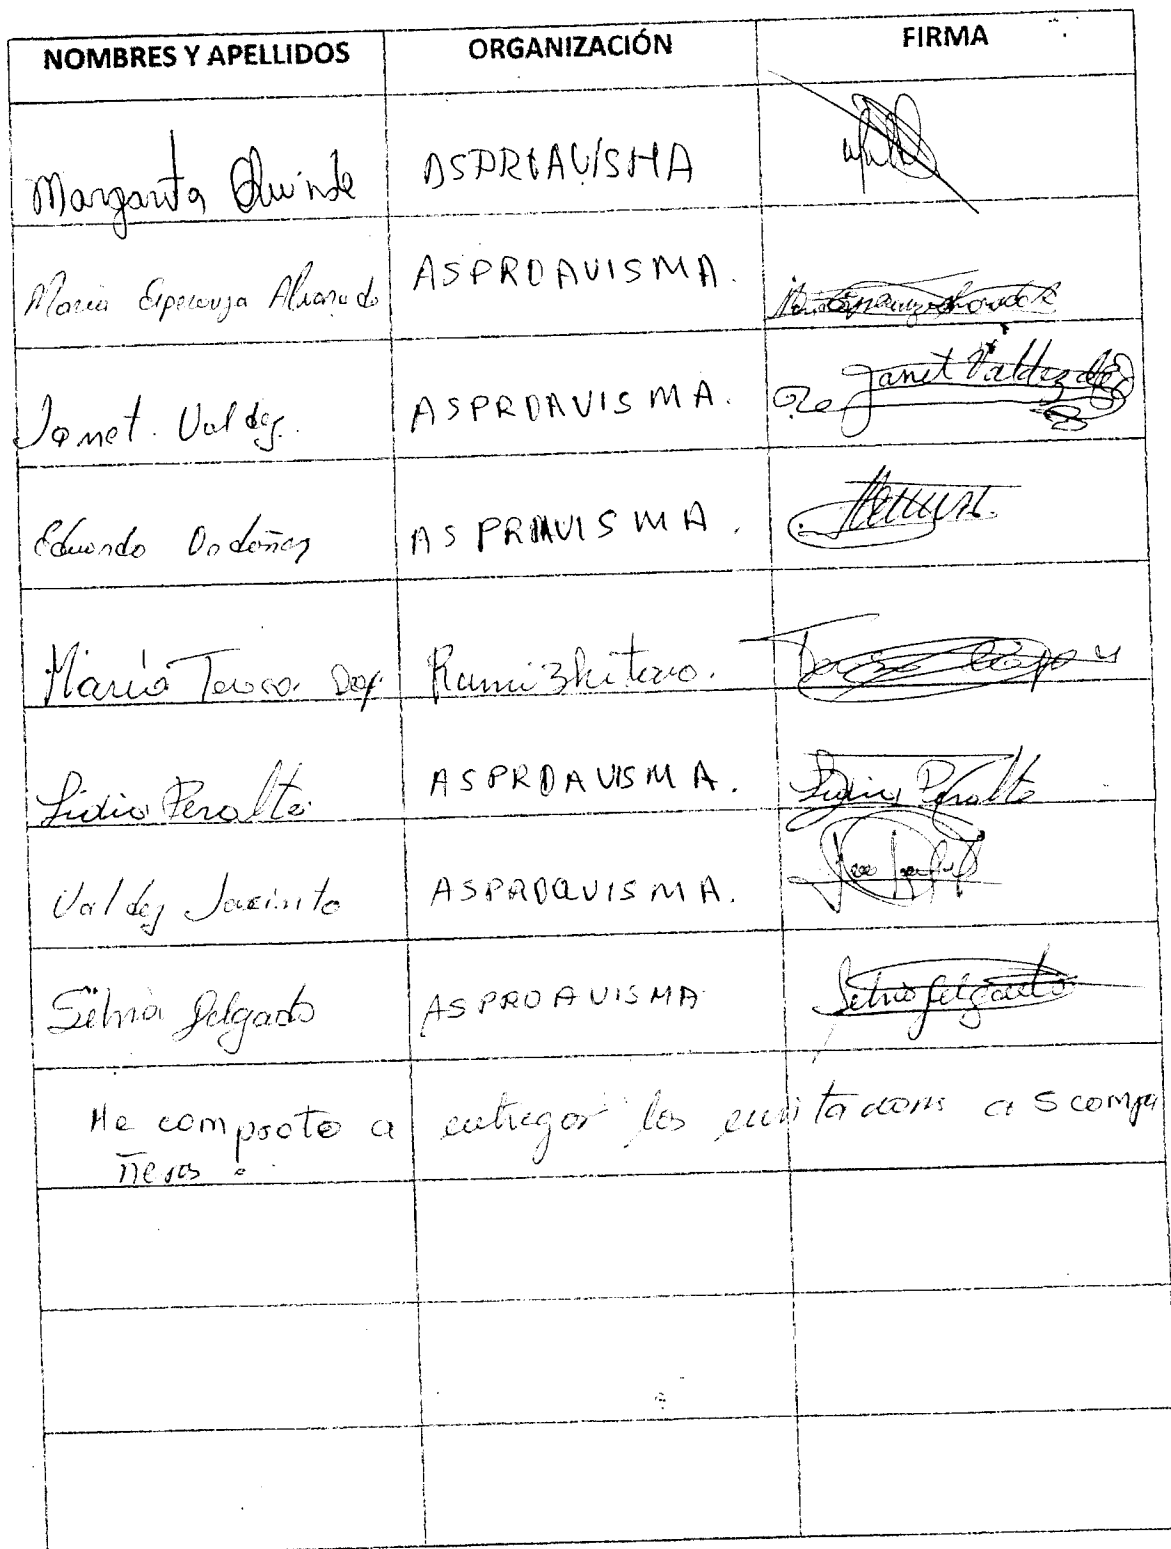 NOMBRES Y APELLIDOS ORGANIZACIÓN FIRMA
Margarita Quinde ASPROAVISMA
Maria Esperanza Alvarado ASPROAVISMA.
Janet. Valdez. ASPROAVISMA. Janet Valdez
Eduardo Ordoñez ASPROAVISMA.
María Teresa Rumizhitana.
Lidia Peralta ASPROAVISMA. Lidia Peralta
Valdez Jacinto ASPROAVISMA.
Silvia Delgado ASPROAVISMA Silvia Delgado
Me comproto a entregar las a 5 compa
ñeros.